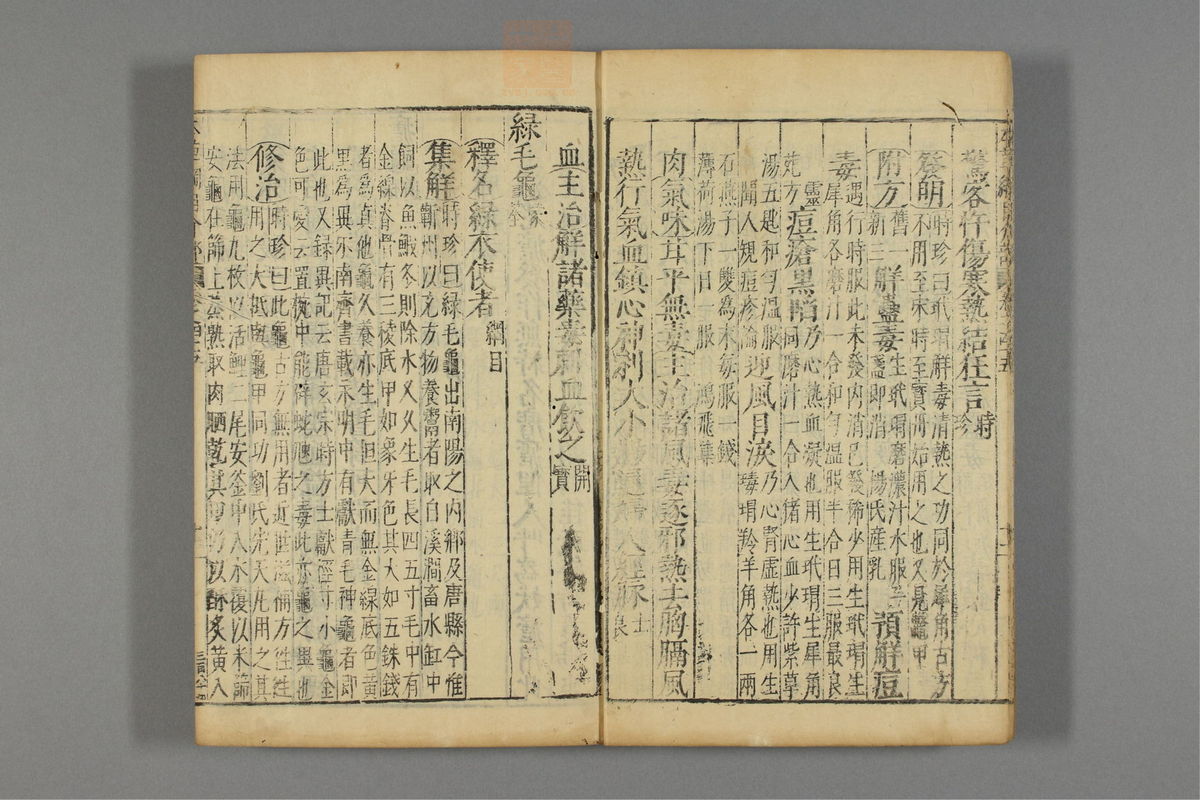 驚客忤傷寒熱結狂言時珍
發明時珍曰玳瑁解毒清熱之功同於犀角古方
不用至宋時至寶丹始用之也又見鼈甲
附方舊一新三解蠱毒生玳瑁磨濃汁水服
盞即消楊氏產乳預解痘
毒遇行時服此未發內消已發稀少用生玳瑁生
犀角各磨汁一合和勻溫服半合日三服最良
靈苑方痘瘡黑陷乃心熱血凝也用生玳瑁生犀角
同磨汁一合入猪心血少許紫草
湯五匙和勻溫服
聞人規痘疹論迎風目淚乃心腎虛熱也用生
瑇瑁羚羊角各一兩
石燕子一雙為末每服一錢
薄荷湯下日一服 鴻飛集
肉氣味甘平無毒主治諸風毒逐邪熱去胸膈風
熱行氣血鎮心神利大小 士良
血主治解諸藥毒刺血飲之開寶
綠毛龜蒙筌
釋名綠衣使者綱目
集解時珍曰綠毛龜出南陽之內鄉及唐縣今惟
蘄州以充方物養鬻者取自溪澗畜水缸中
飼以魚鰕冬則除水久久生毛長四五寸毛中有
金線脊骨有三稜底甲如象牙色其大如五銖錢
者為真他龜久養亦生毛但大而無金線底色黃
黑為異尓南齊書載永明中有獻青毛神龜者即
此也又録異記云唐玄宗時方士獻徑寸小龜金
色可愛云置椀中能辟蛇虺之毒此亦龜之異也
修治時珍曰此龜古方無用者近世滋補方徃徃
用之大抵與龜甲同功劉氏先天丸用之其
法用龜九枚以活鯉二尾安釜中入水覆以米篩
安龜在篩上蒸熟取肉晒乾其甲仍以酥炙黃入